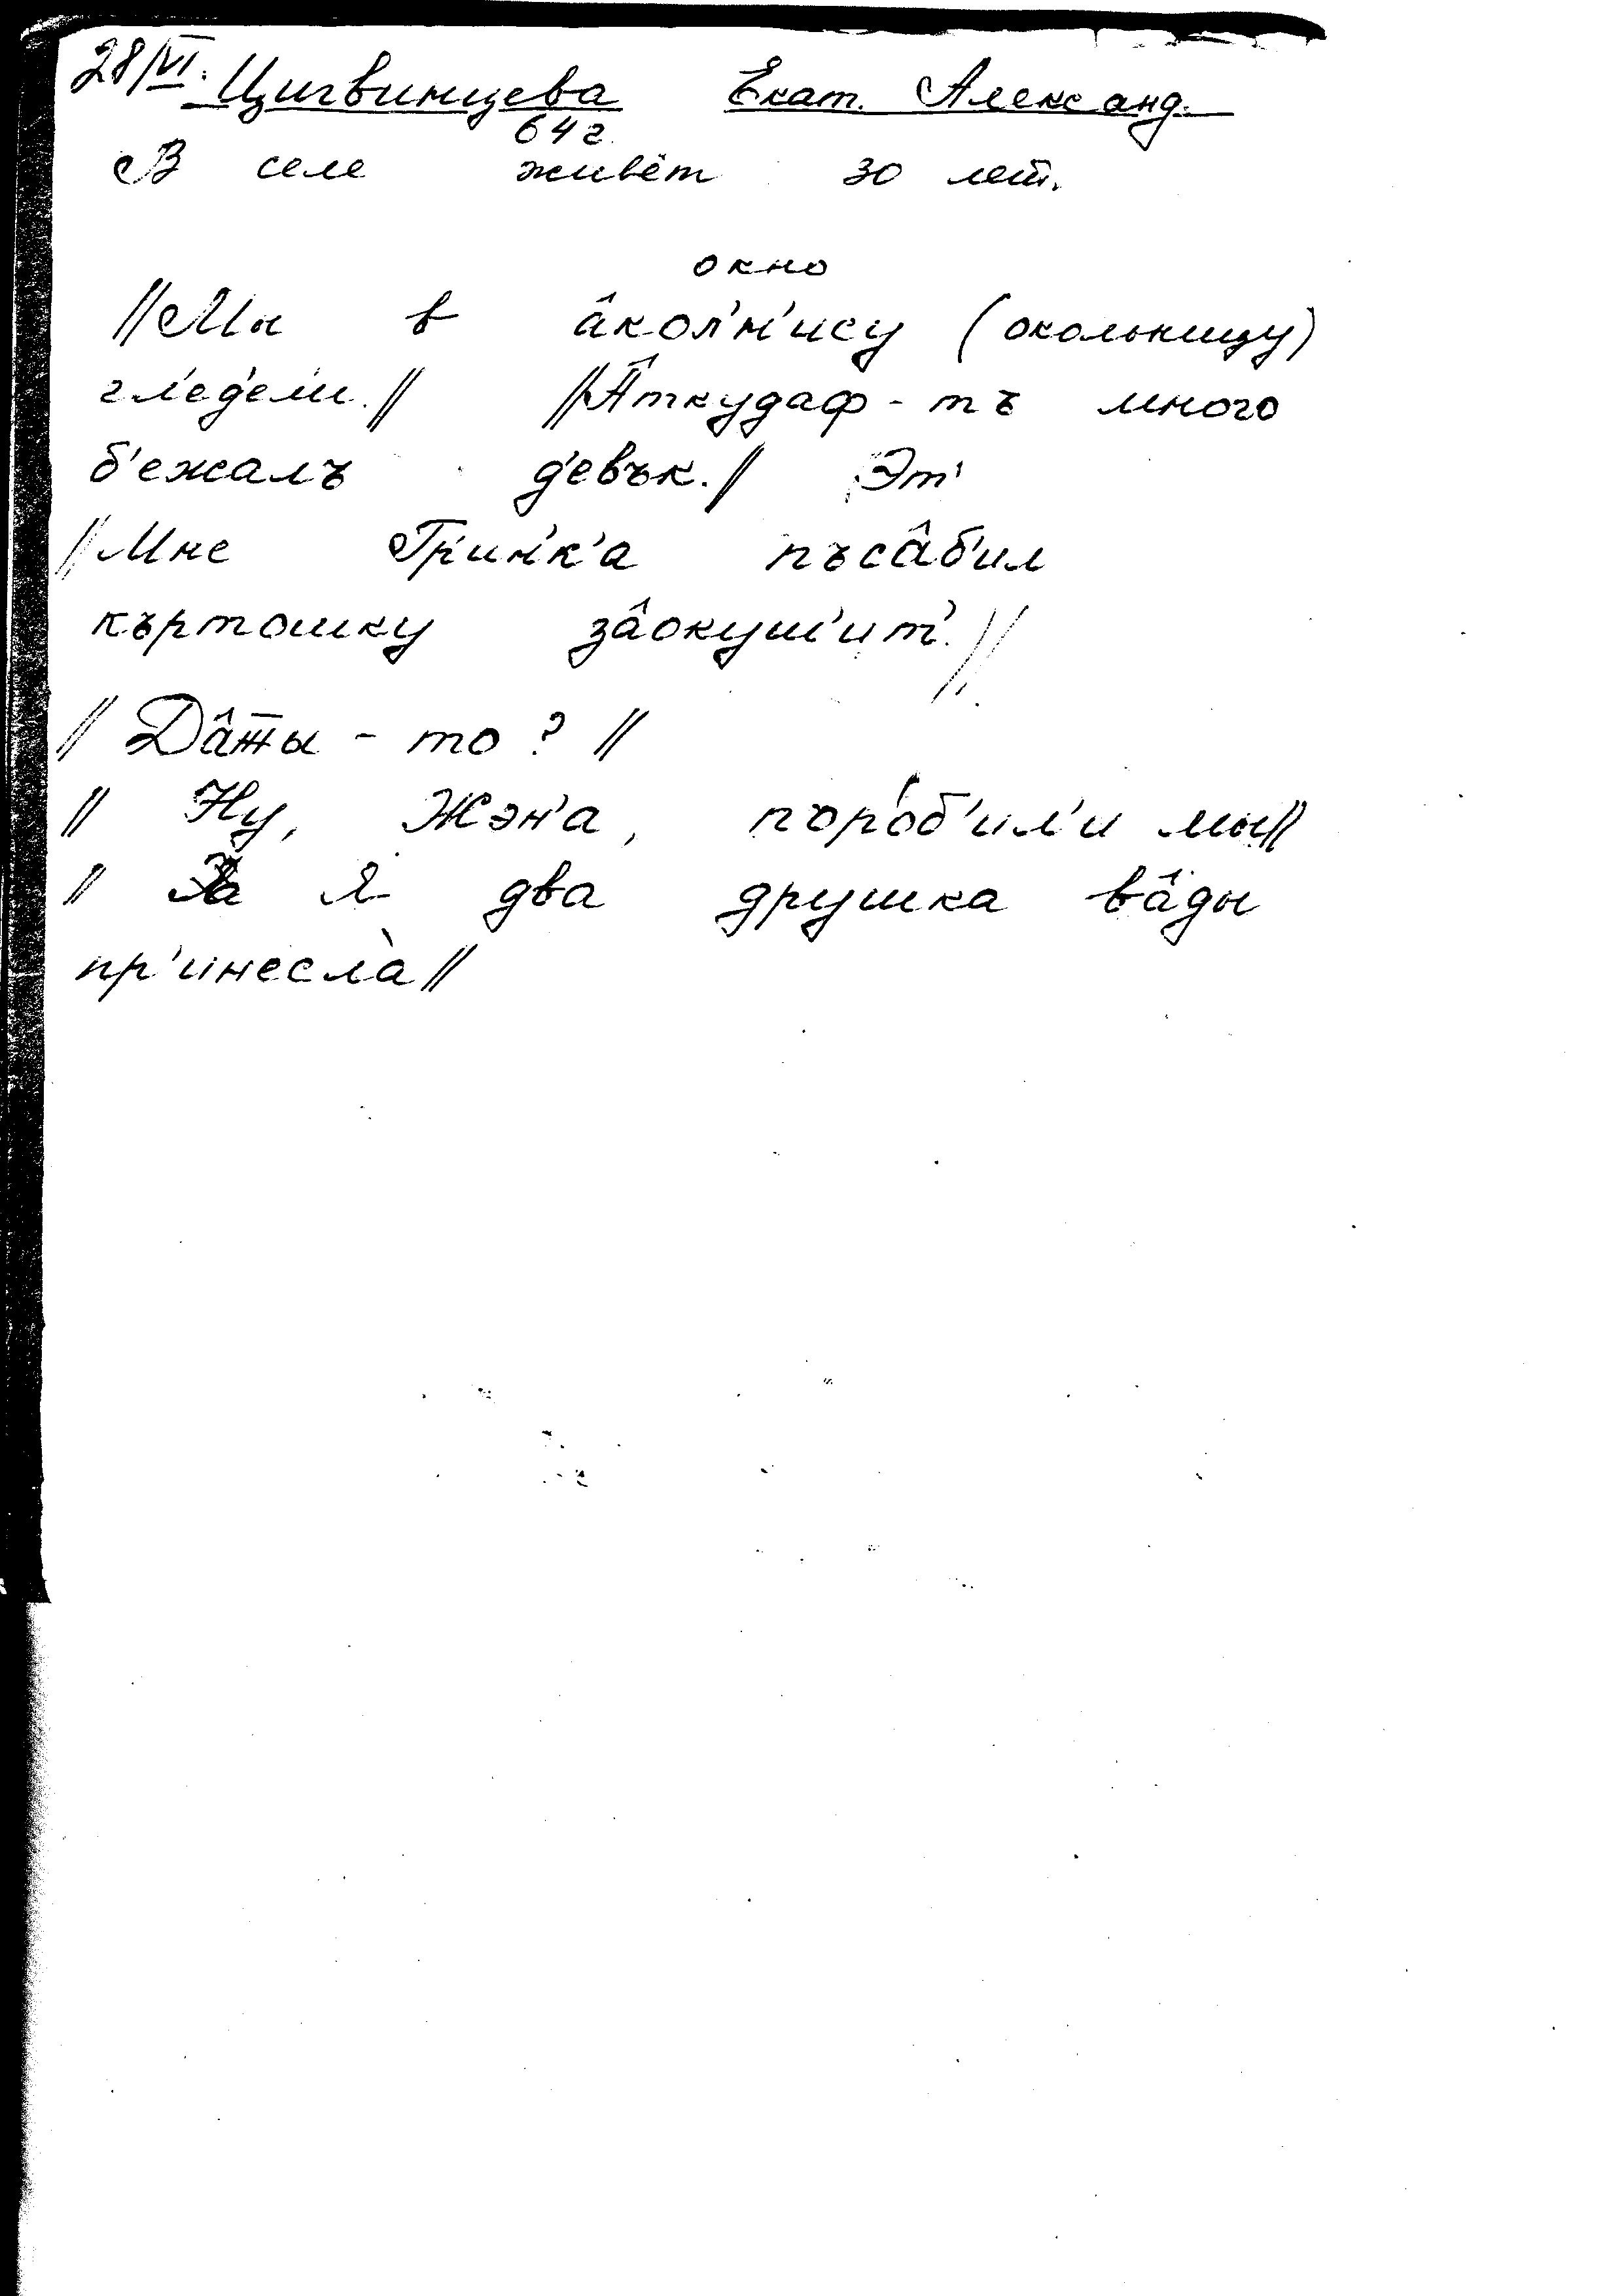 28/VI. Цигвинцева Екат. Александ.
64 г.
В селе живёт 30 лет.
окно
// Мы в а̂кол'н'ису (окольницу)
гл'ед'ели. // // А̂ткудаф - тъ много
б'ежалъ д'евък. // Эт'
// Мне Гр'ин'к'а пъса̂б'ил
къртошку за̂окуш'ит'. //
// Да̂ты - то? //
// Ну, Жэн'а, пъро́б'ил'и мы //
// За я два друшка ва̂ды
пр'инесла̀ //